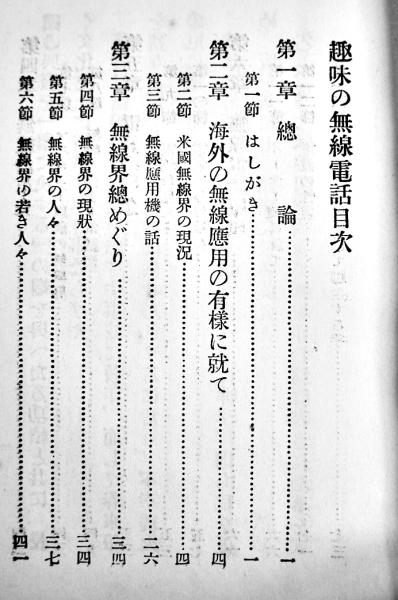 趣味の無線電話目次
第一章 總論……一
第一節 はしがき……一
第二章 海外の無線應用の有樣に就て……四
第二節 米國無線界の現況……四
第三節 無線應用機の話……二六
第三章 無線界總めぐり……三四
第四節 無線界の現狀……三四
第五節 無線界の人々……三七
第六節 無線界の若き人々……四一